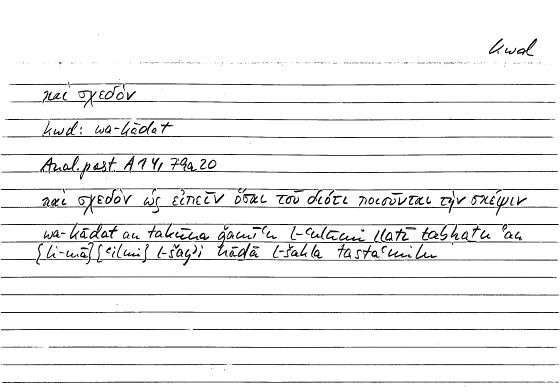 kwd
καὶ σχεδόν
kwd: wa-kādat
Anal. post A 14, 79a20
καὶ σχεδὸν ὡς εἰπεῖν ὅσαι τοῦ διότι ποιοῦνται τὴν σκέψιν
wa-kādat an takūna ǧamīʿu l-ʿulūmi llatī tabḥaṯu ʿan
{li-mā} {ʿilmi} l-šayʾi hāḏā l-šakla tastaʿmilu